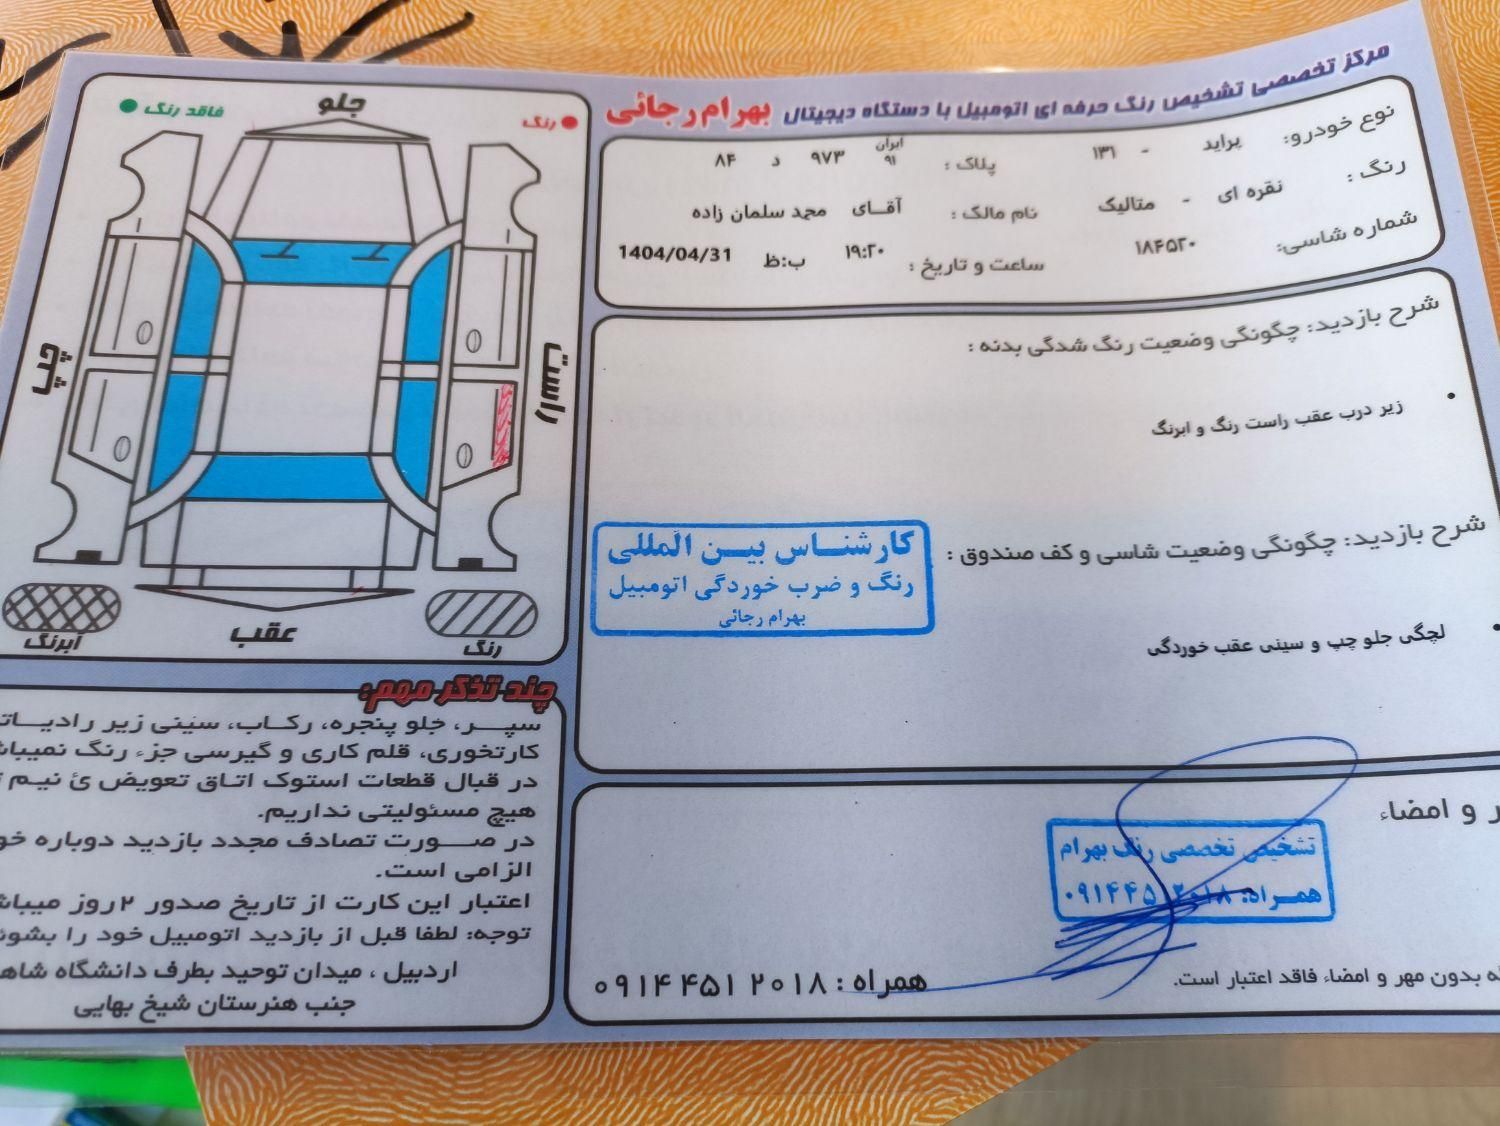 مرکز تخصصی تشخیص رنگ حرفه ای اتومبیل با دستگاه دیجیتال بهرام رجائی
نوع خودرو: پراید - ۱۳۱ پلاک : ایران ۹۱ ۹۷۳ د ۸۴
رنگ : نقره ای - متالیک نام مالک : آقـای محمد سلمان زاده
شماره شاسی: ۱۸۴۵۲۰ ساعت و تاریخ : ۱۹:۲۰ ب:ظ 1404/04/31
شرح بازدید: چگونگی وضعیت رنگ شدگی بدنه :
• زیر درب عقب راست رنگ و ابرنگ
شرح بازدید: چگونگی وضعیت شاسی و کف صندوق :
• لچگی جلو چپ و سینی عقب خوردگی
کارشناس بین المللی
رنگ و ضرب خوردگی اتومبیل
بهرام رجائی
ر و امضاء
تشخیص تخصصی رنگ بهرام
همراه: ۰۹۱۴۴۵۱۲۰۱۸
بدون مهر و امضاء فاقد اعتبار است.
همراه : ۰۹۱۴ ۴۵۱ ۲۰۱۸
رنگ
فاقد رنگ
جلو
چپ
راست
عقب
رنگ
ابرنگ
چند تذکر مهم:
سپر، جلو پنجره، رکاب، سینی زیر رادیات
کارتخوری، قلم کاری و گیرسی جزء رنگ نمیباش
در قبال قطعات استوک اتاق تعویض ئ نیم
هیچ مسئولیتی نداریم.
در صورت تصادف مجدد بازدید دوباره خو
الزامی است.
اعتبار این کارت از تاریخ صدور ۲ روز میباش
توجه: لطفا قبل از بازدید اتومبیل خود را بشوئ
اردبیل ، میدان توحید بطرف دانشگاه شاه
جنب هنرستان شیخ بهایی